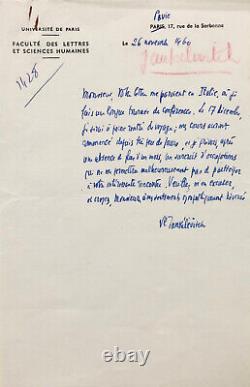 Pavie
UNIVERSITÉ DE PARIS
PARIS, 17, rue de la Sorbonne
FACULTÉ DES LETTRES
ET SCIENCES HUMAINES
Le 26 novembre 1960
Jankélévitch
1428
Monsieur, Votre lettre me parvient en Italie, où je
fais une longue tournée de conférences. Le 17 décembre,
je serai à peine rentré de voyage ; mes cours auront
commencé depuis très peu de jours, et j'aurai, après
une absence de plus d'un mois, un surcroît d'occupations
qui ne me permettra malheureusement pas de participer
à votre intéressante rencontre. Veuillez m'en excuser,
et croyez, Monsieur, à mes sentiments sympathiquement dévoués
Vl Jankélévitch